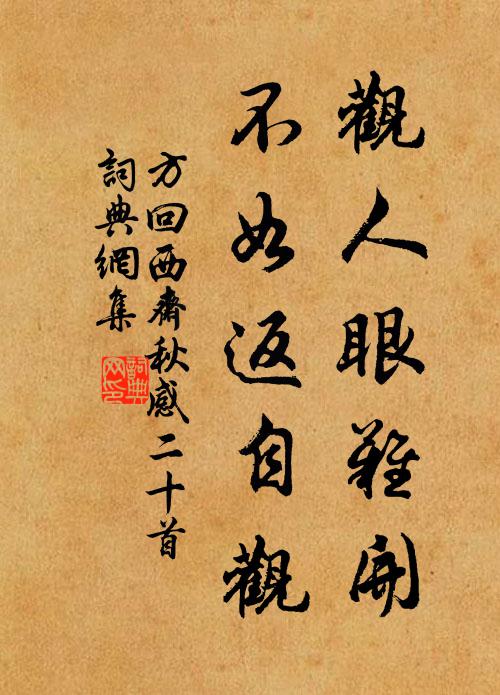 觀人眼難開
不如返自觀
方回西齋秋感二十首
詞典網集
詞典
网印